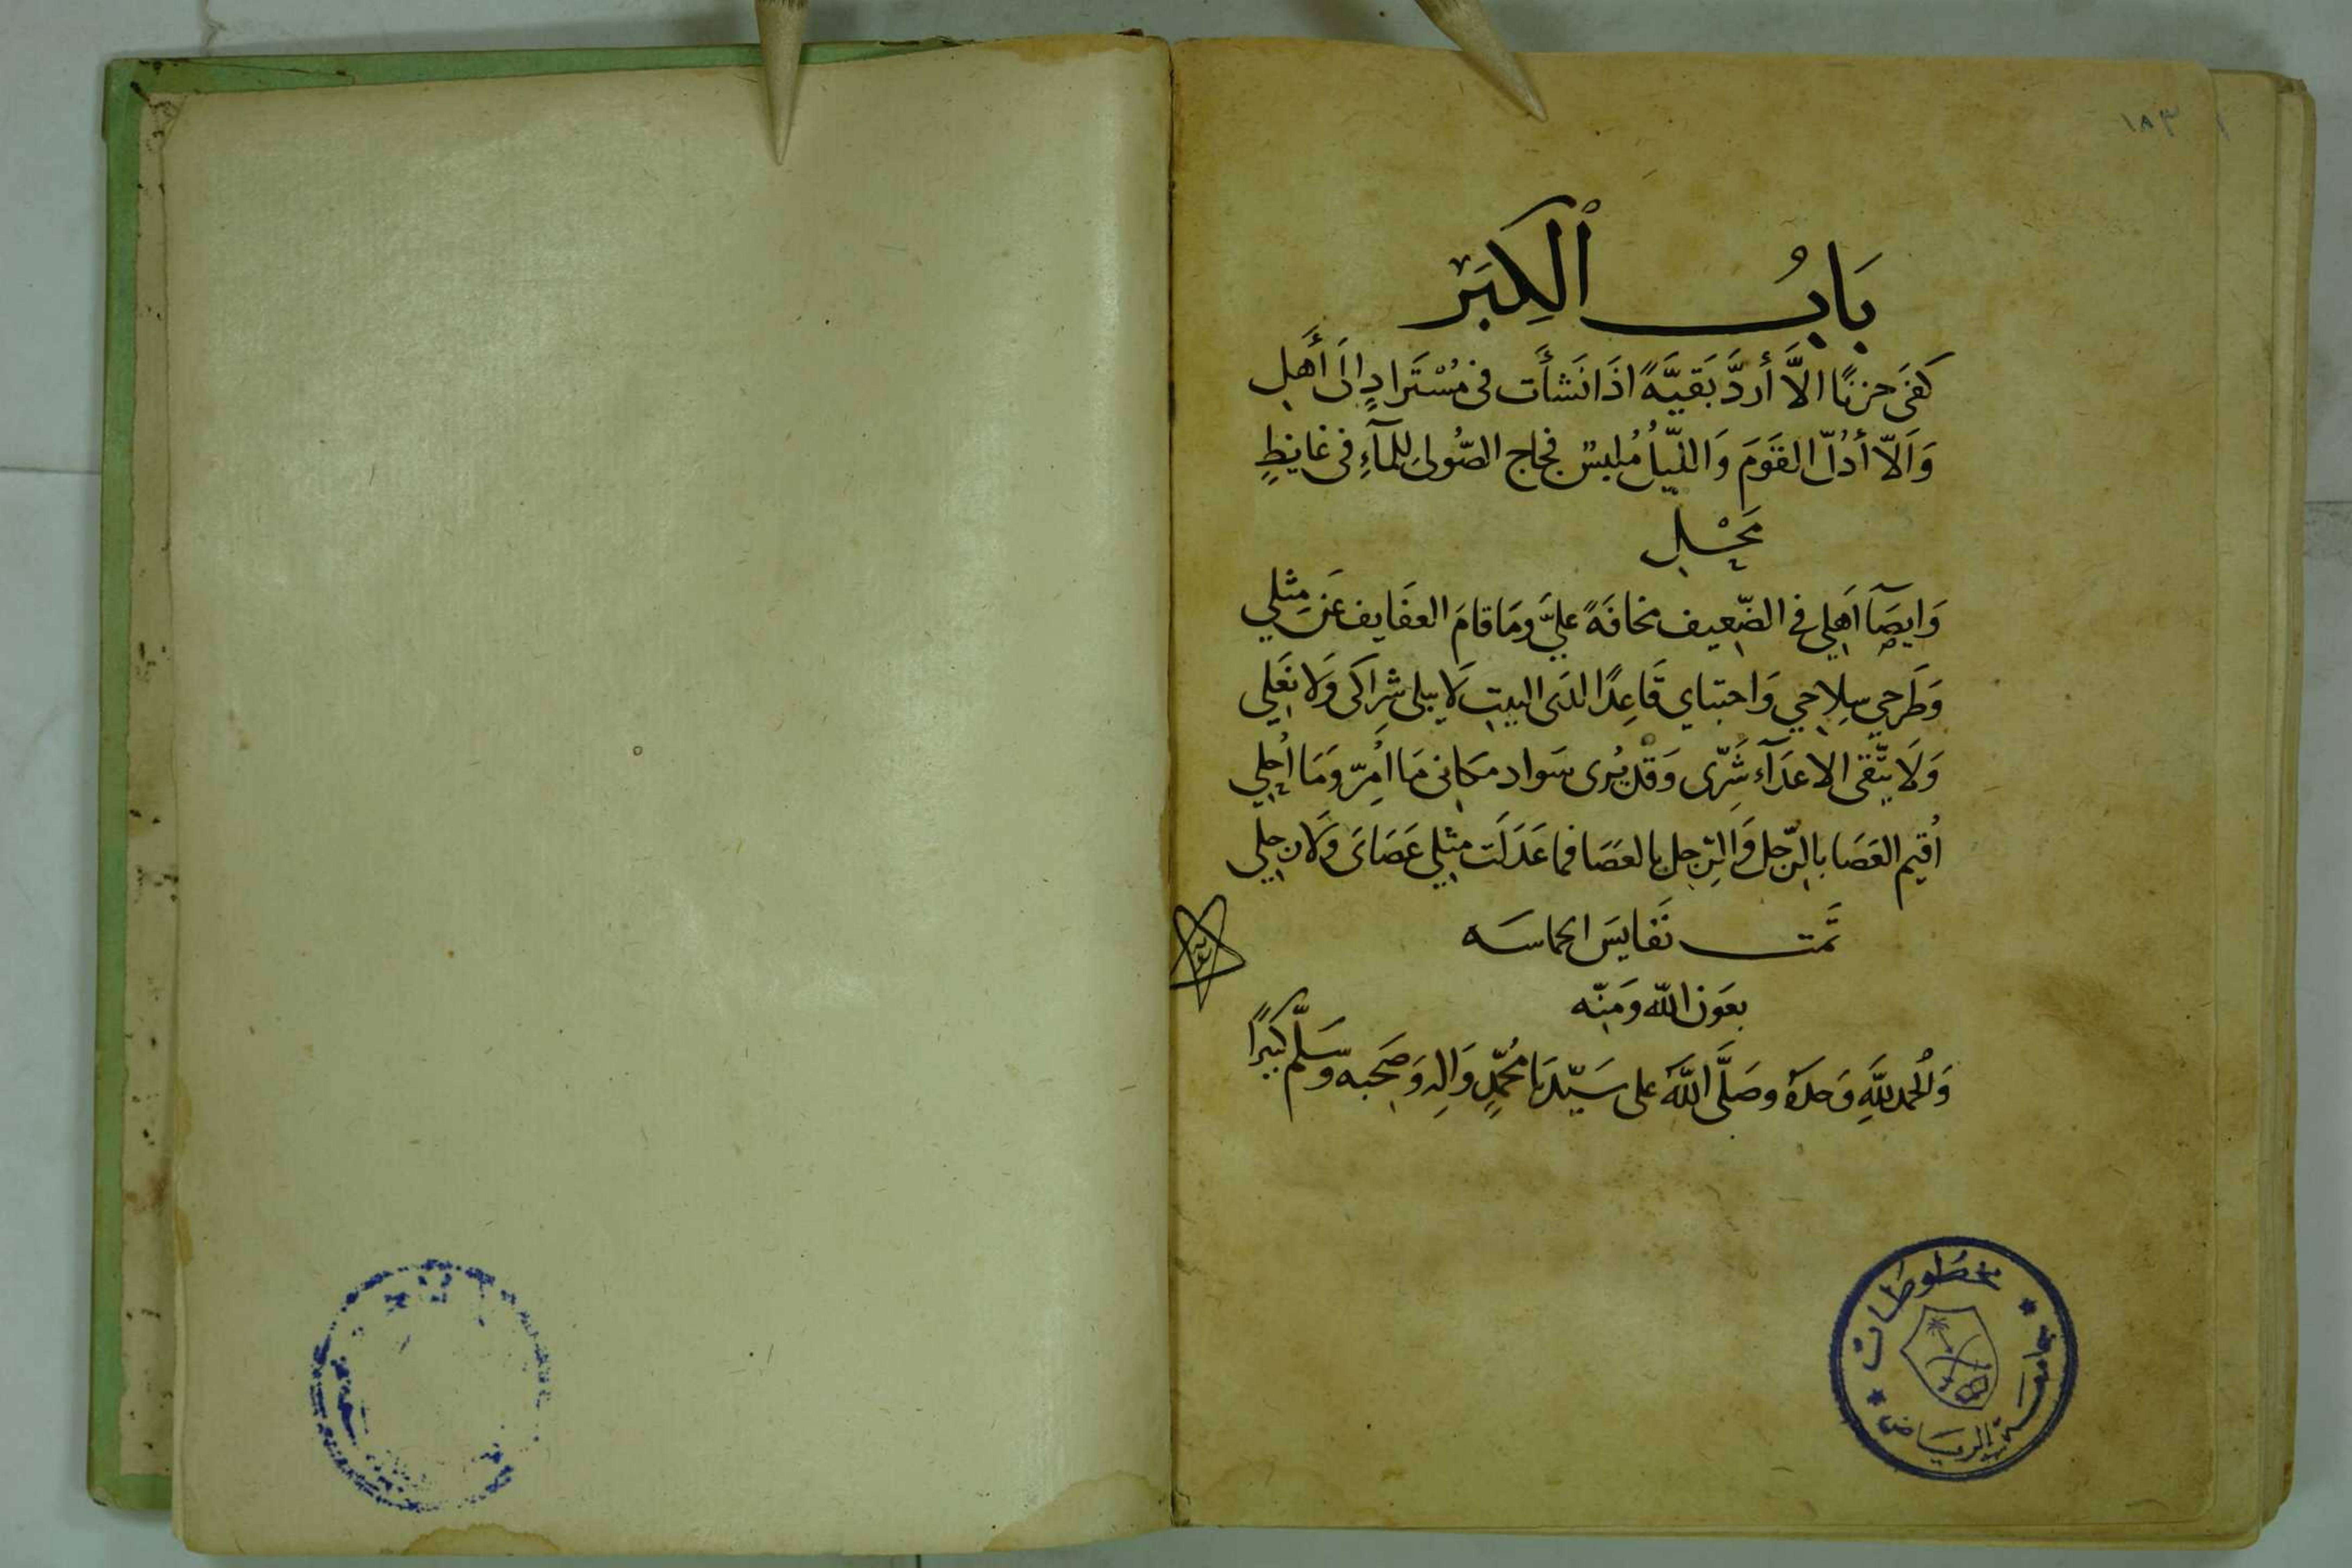 ١٨٣
بَابُ ٱلْكِبَر
كفى حزنًا الاَّ أردَّ بَقيَّةً اذَا نَشأَت فى مُسْتَرادٍ اِلَى أَهَلِ
وَاَلاّ أدُلّ القَوَمَ وَالليّلُ مُلبسٌ فجاج الصُّوى لِلمآءِ فى غايطٍ
مَحْـلِ
وَايصَآ اَهلِي فى الضّعيف مخافَةً عليَّ ومَا قامَ العفَايف عَن مِثلي
وَطَرحِي سِلاِحِي وَاحتباي قَاعِدًا لدَى البيتِ لاَ يبلى شِرَاكَى وَلَا نَعَلِي
وَلَا يتّقى الاعدَآء شَرِّى وَقَد يُرى سَواد مكَانى مَا اُمِرّ ومَا اُحلِي
اُقيم العَصَا بالرّجل وَالرّجل بالعصَا فما عَدَلَت مثلِي عَصَاىَ وَلَا رِجلِي
تَمّت نَفايسَ الحماسَه
بعَون اللّه وَمَنِّه
وَالحُمد للَّهِ وَحدَهُ وصَلَّى اللَّهَ على سَيّدنَا مُحَمّدٍ وَالِهِ وَصَحبه وَسَلَّم كَثيرًا
مخطوطات
جامعة الرياض